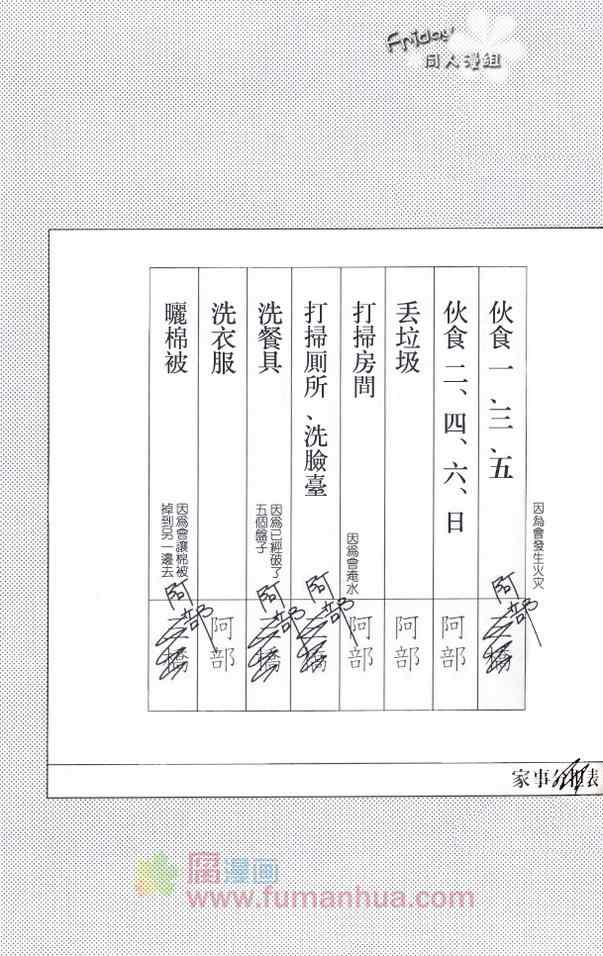 Friday
同人漫組
因為會發生火災
伙食 一、三、五
阿部
三橋
伙食 二、四、六、日
阿部
丟垃圾
阿部
打掃房間
阿部
因為會淹水
打掃厠所、洗臉臺
阿部
三橋
因為已經破了
五個盤子
洗餐具
阿部
三橋
洗衣服
阿部
因為會讓棉被
掉到另一邊去
曬棉被
阿部
三橋
家事分担表
腐漫画
www.fumanhua.com